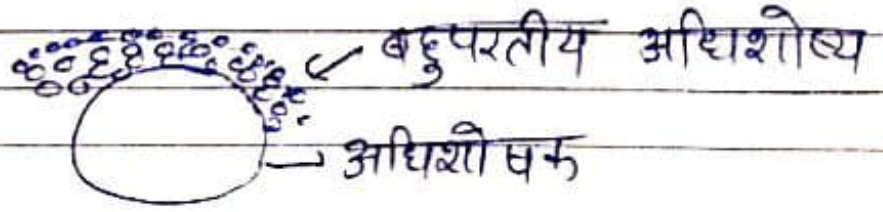 बहुपरतीय अधिशोष्य
अधिशोषक